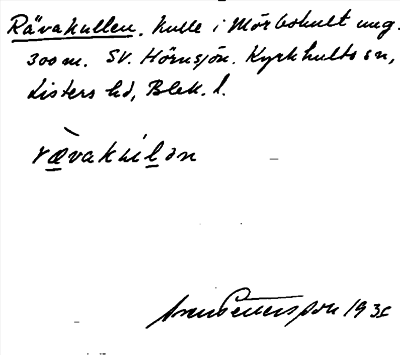 Rävakullen. kulle i Mörbohult ung.
300 m. SV. Hörnsjön. Kyrkhults sn,
Listers hd, Blek. l.
rævakúlən
Sven Pettersson 193